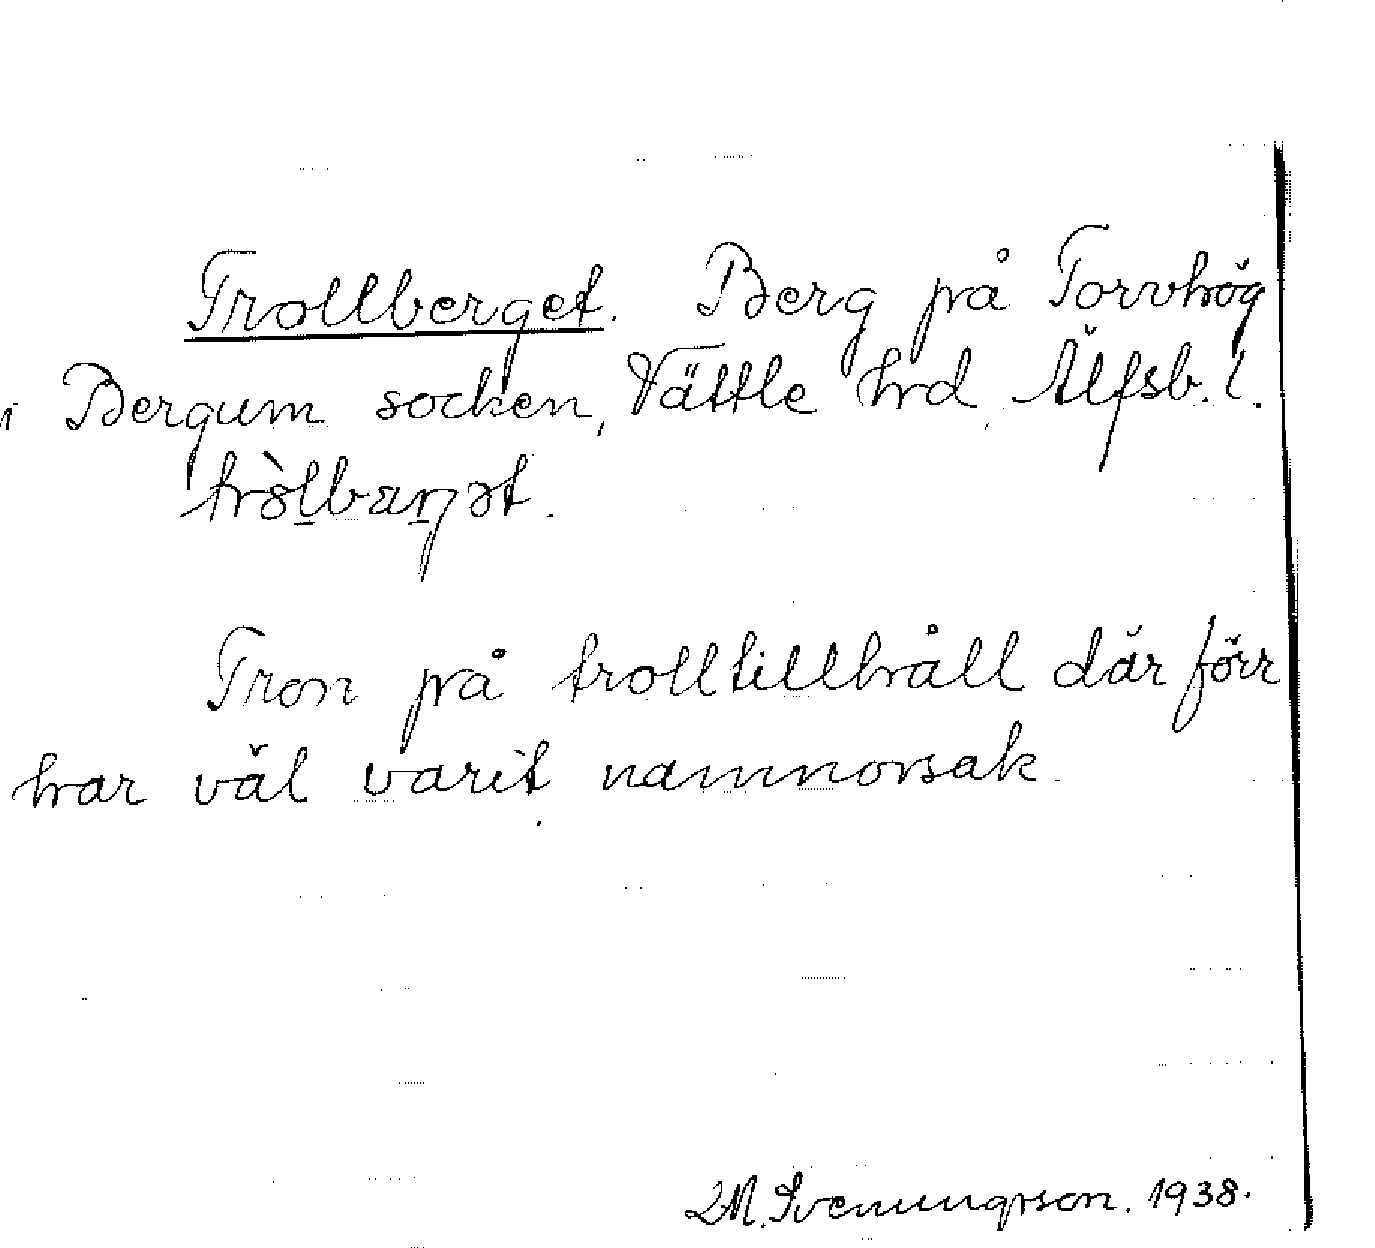 Trollberget. Berg på Torvhög
i Bergum socken, Vättle hrd, Älfsb. l.
trò̀l̠bæ̠ŋət.
Tron på trolltillhåll där förr
har väl varit namnorsak.
L M. Svenungsson. 1938.